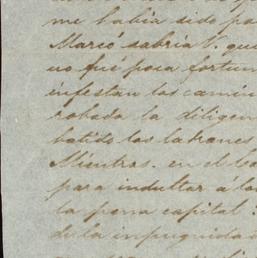 me había sido pa
Marcó sabria V. que
no fué poca fortun
infestan los camin
robada la diligen
batido los ladrones
Mientras. en el
para indultar á lo
la pena capital:
de la impugnidad